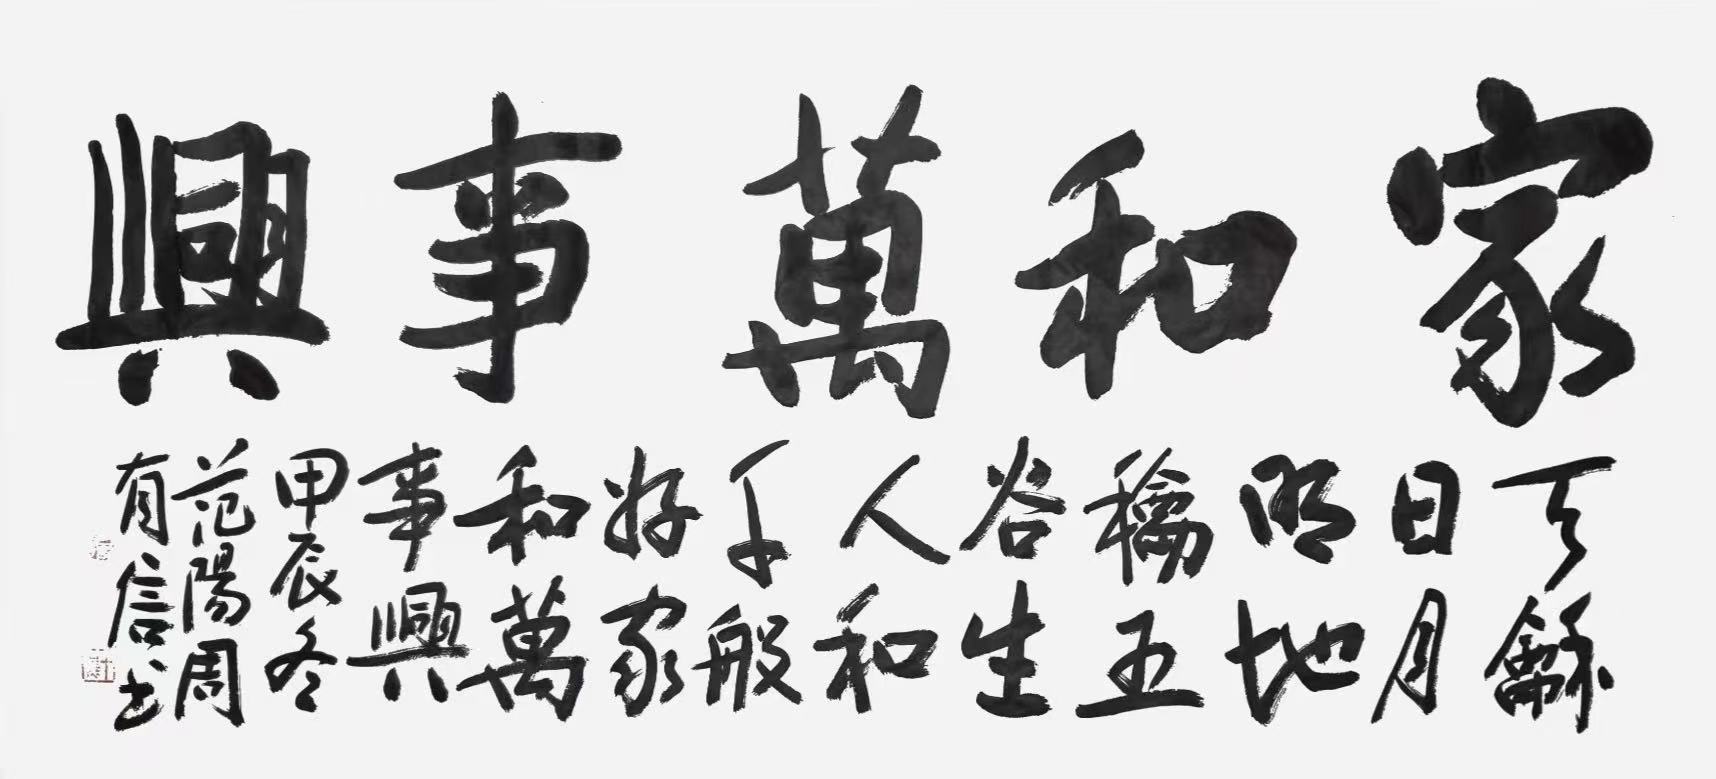 家和萬事興
天龢
日月
明地
龢五
谷生
人和
千般
好家
和萬
事興
甲辰冬
范陽周
有信书